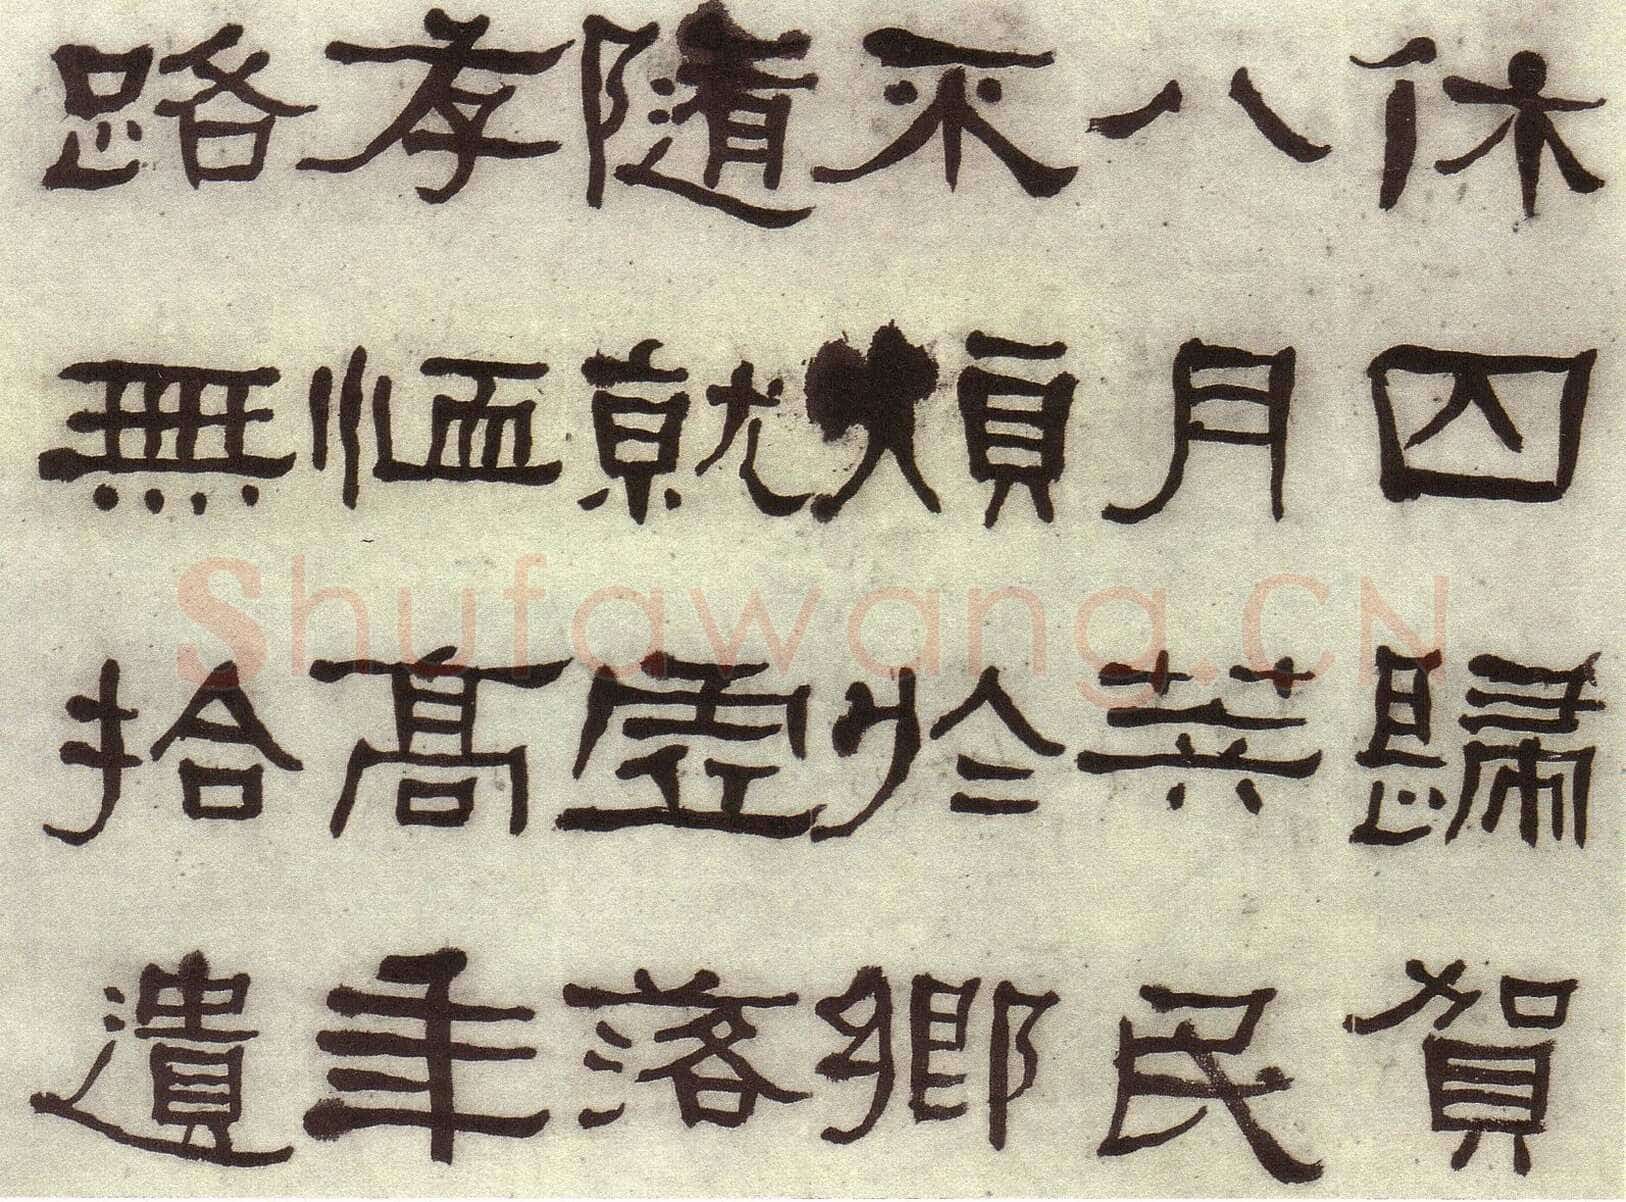 休囚歸賀
八月筭民
不煩於鄉
隨就虛落
存恤高年
路無拾遺
Shufawang.CN